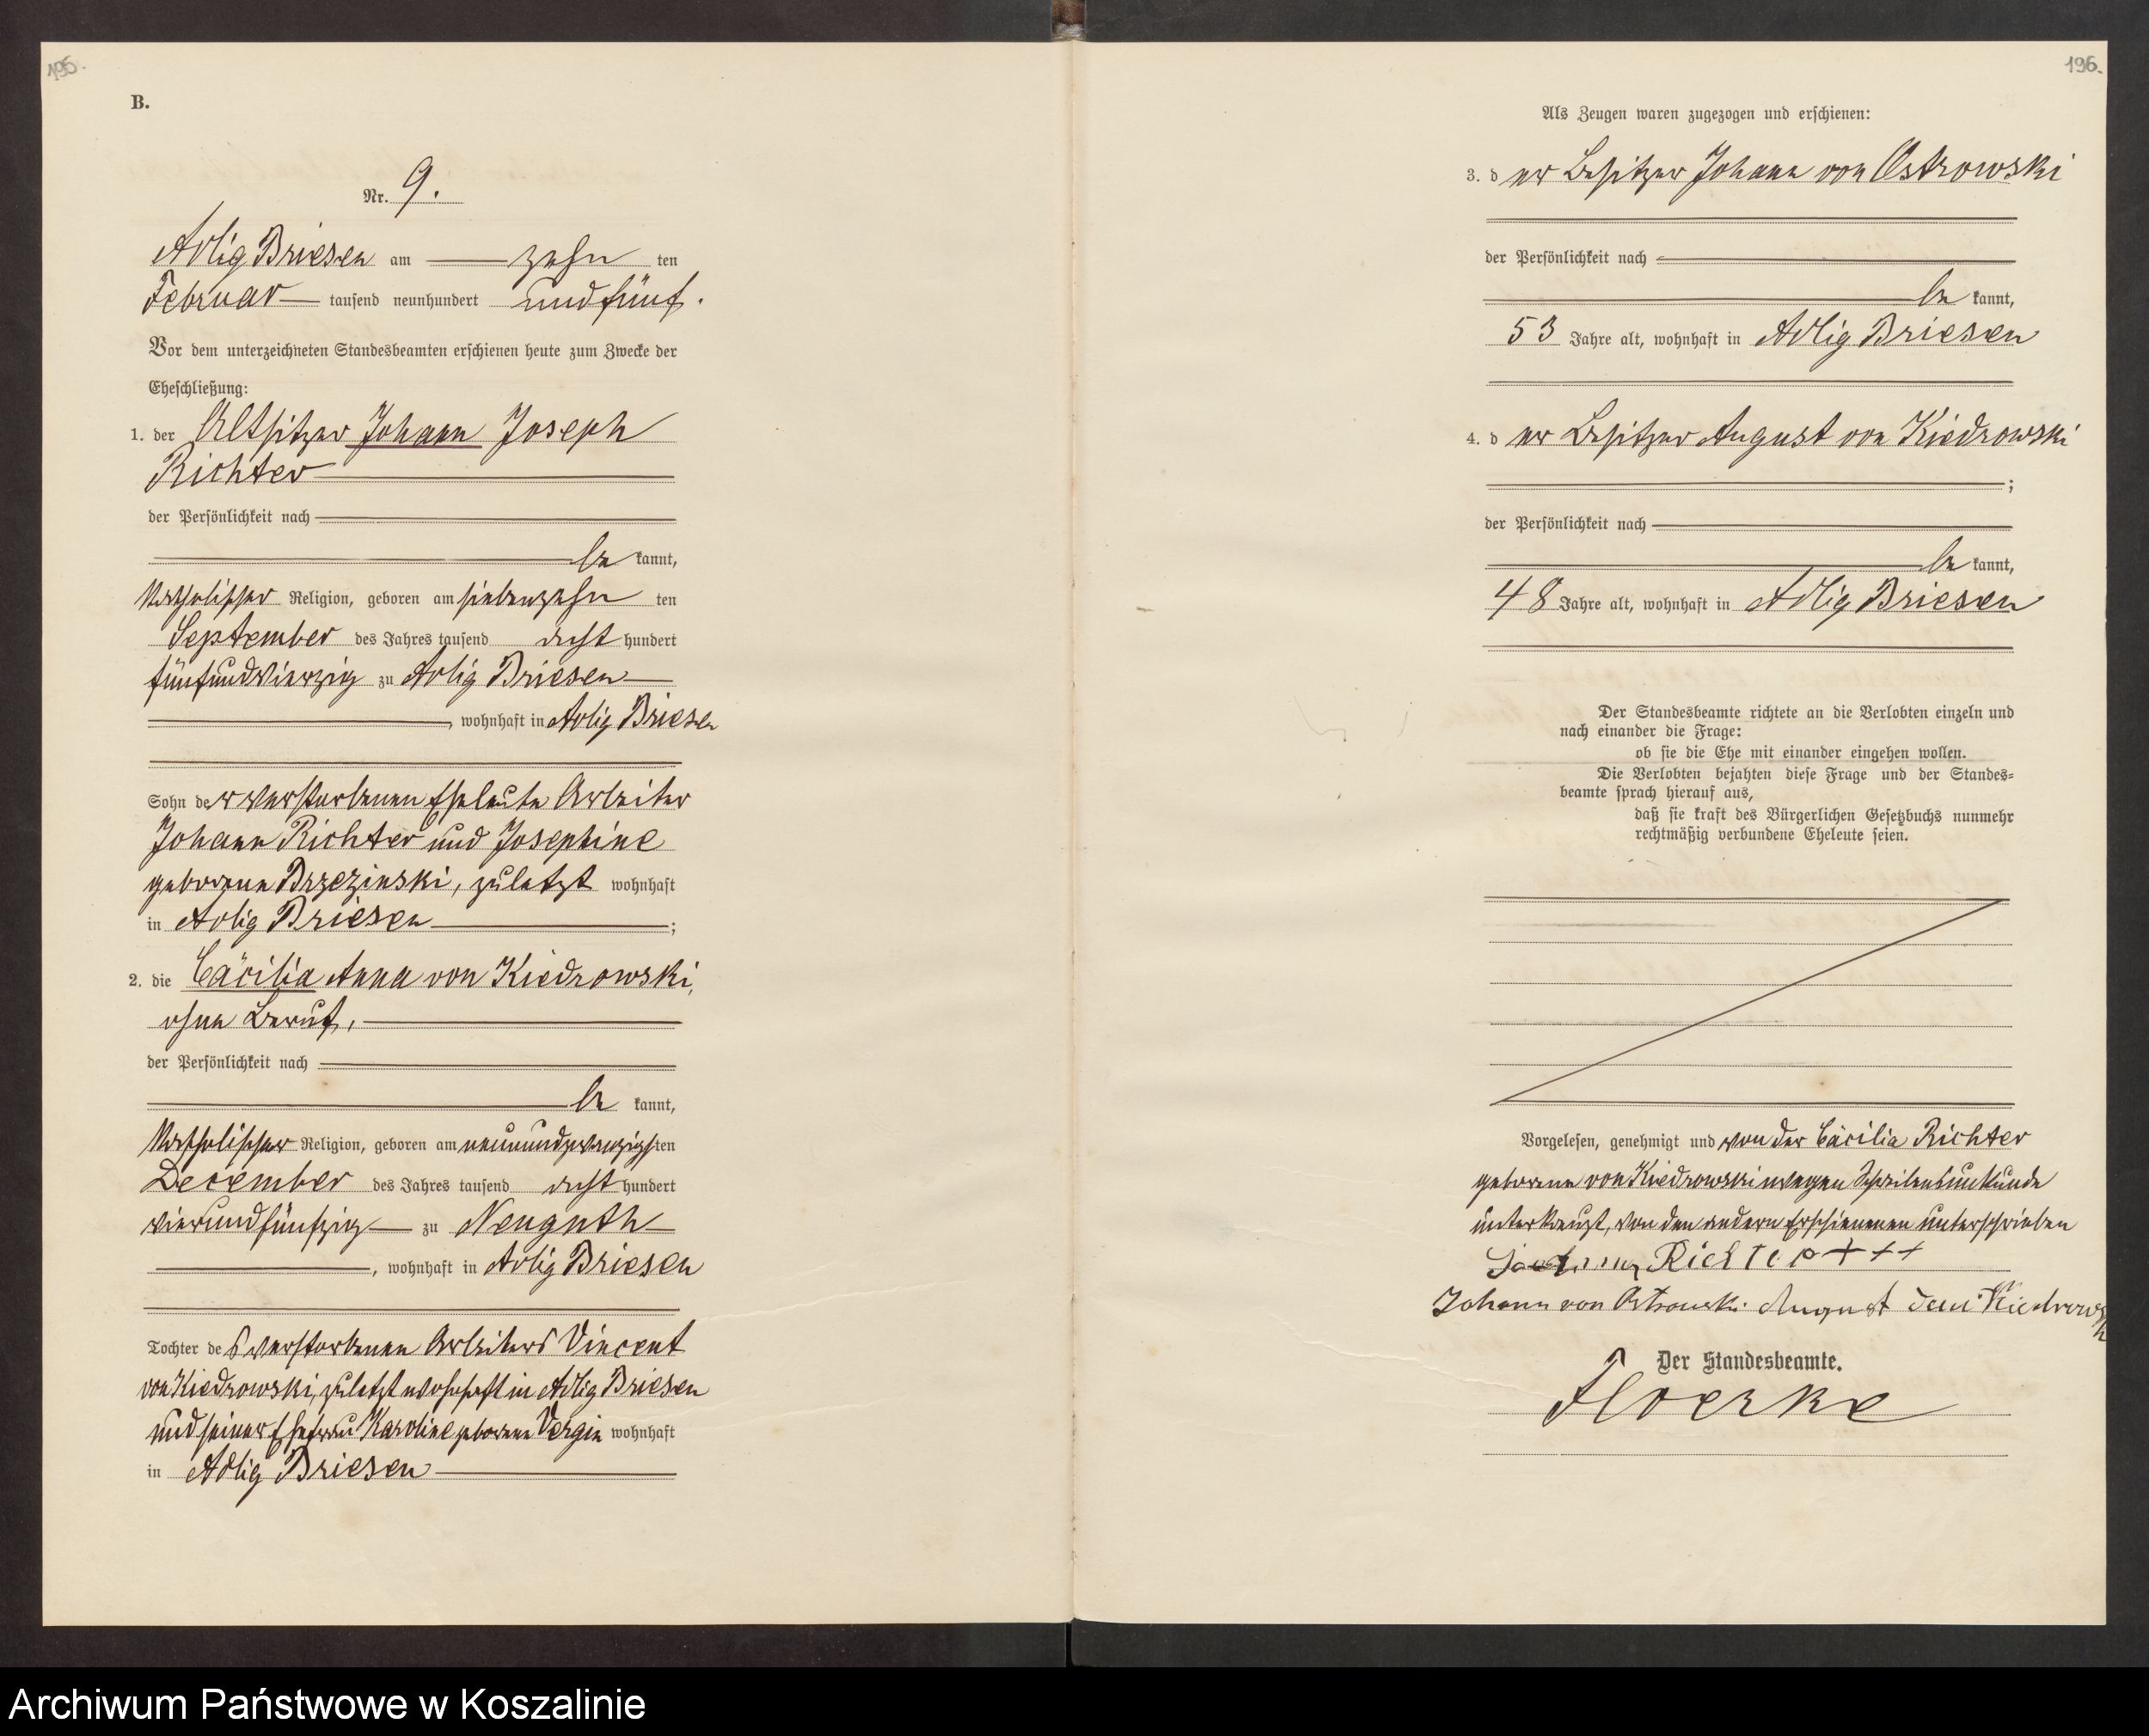 195.
B.
Nr. 9.
Adlig Briesen am zehn ten
Februar tausend neunhundert undfünf.
Vor dem unterzeichneten Standesbeamten erschienen heute zum Zwecke der
Eheschließung:
1. der Altsitzer Johann Joseph
Richter
der Persönlichkeit nach
be kannt,
katholischer Religion, geboren am siebenzehn ten
September des Jahres tausend acht hundert
fünfundvierzig zu Adlig Briesen
, wohnhaft in Adlig Briesen
Sohn der verstorbenen Eheleute Arbeiter
Johann Richter und Josephine
geborene Brzezinski, zuletzt wohnhaft
in Adlig Briesen ;
2. die Cäcilia Anna von Kiedrowski,
ohne Beruf,
der Persönlichkeit nach
be kannt,
katholischer Religion, geboren am neunundzwanzigsten
December des Jahres tausend acht hundert
vierundfünfzig zu Neuguth
, wohnhaft in Adlig Briesen
Tochter des verstorbenen Arbeiters Vincent
von Kiedrowski, zuletzt wohnhaft in Adlig Briesen
und seiner Ehefrau Karoline geborene Vergin wohnhaft
in Adlig Briesen
196.
Als Zeugen waren zugezogen und erschienen:
3. der Besitzer Johann von Ostrowski
der Persönlichkeit nach
be kannt,
53 Jahre alt, wohnhaft in Adlig Briesen
4. der Besitzer August von Kiedrowski
;
der Persönlichkeit nach
be kannt,
48 Jahre alt, wohnhaft in Adlig Briesen
Der Standesbeamte richtete an die Verlobten einzeln und
nach einander die Frage:
ob sie die Ehe mit einander eingehen wollen.
Die Verlobten bejahten diese Frage und der Standes-
beamte sprach hierauf aus,
daß sie kraft des Bürgerlichen Gesetzbuchs nunmehr
rechtmäßig verbundene Eheleute seien.
Vorgelesen, genehmigt und von der Cäcilia Richter
geborene von Kiedrowski wegen Schreibensunkunde
unterkreuzt, von den andern Erschienenen unterschrieben
Richter +++
Johann von Ostrowski August Kiedrowsk
Der Standesbeamte.
Floerke
Archiwum Państwowe w Koszalinie